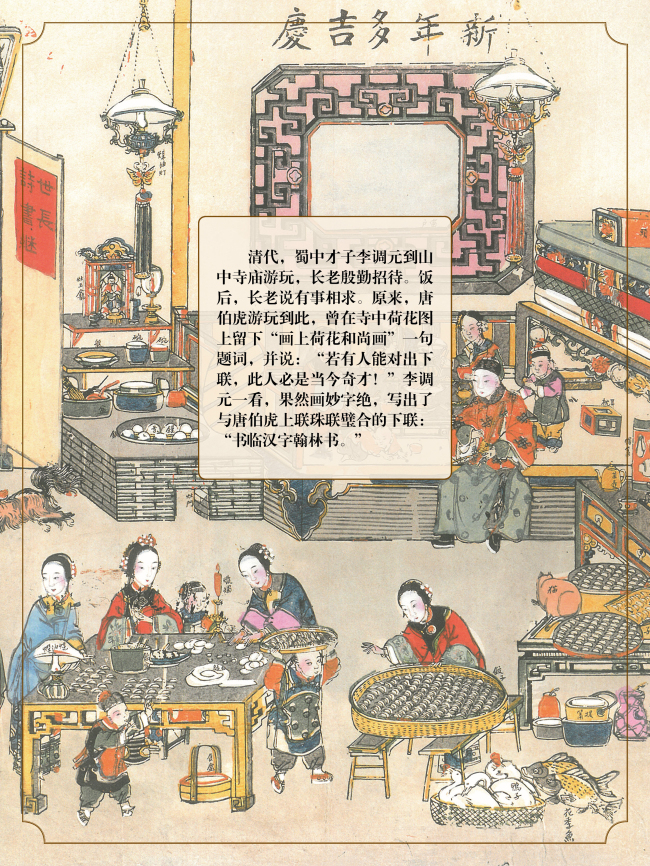 新年多吉慶
世長
詩書继
清代，蜀中才子李调元到山
中寺庙游玩，长老殷勤招待。饭
后，长老说有事相求。原来，唐
伯虎游玩到此，曾在寺中荷花图
上留下“画上荷花和尚画”一句
题词，并说：“若有人能对出下
联，此人必是当今奇才！”李调
元一看，果然画妙字绝，写出了
与唐伯虎上联珠联璧合的下联：
“书临汉字翰林书。”
猫
鸭子
花李魚